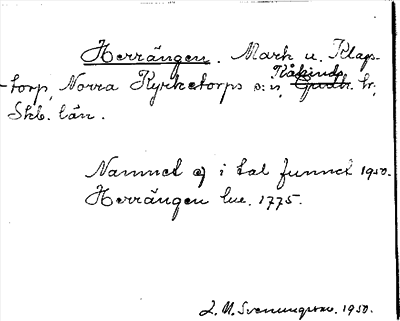 Herrängen. Mark u. Klaps-
torp, Norra Kyrketorps s:n, Kåkinds hr,
Skb. län.
Namnet ej i tal funnet 1950.
Herrängen lue. 1775.
1950.